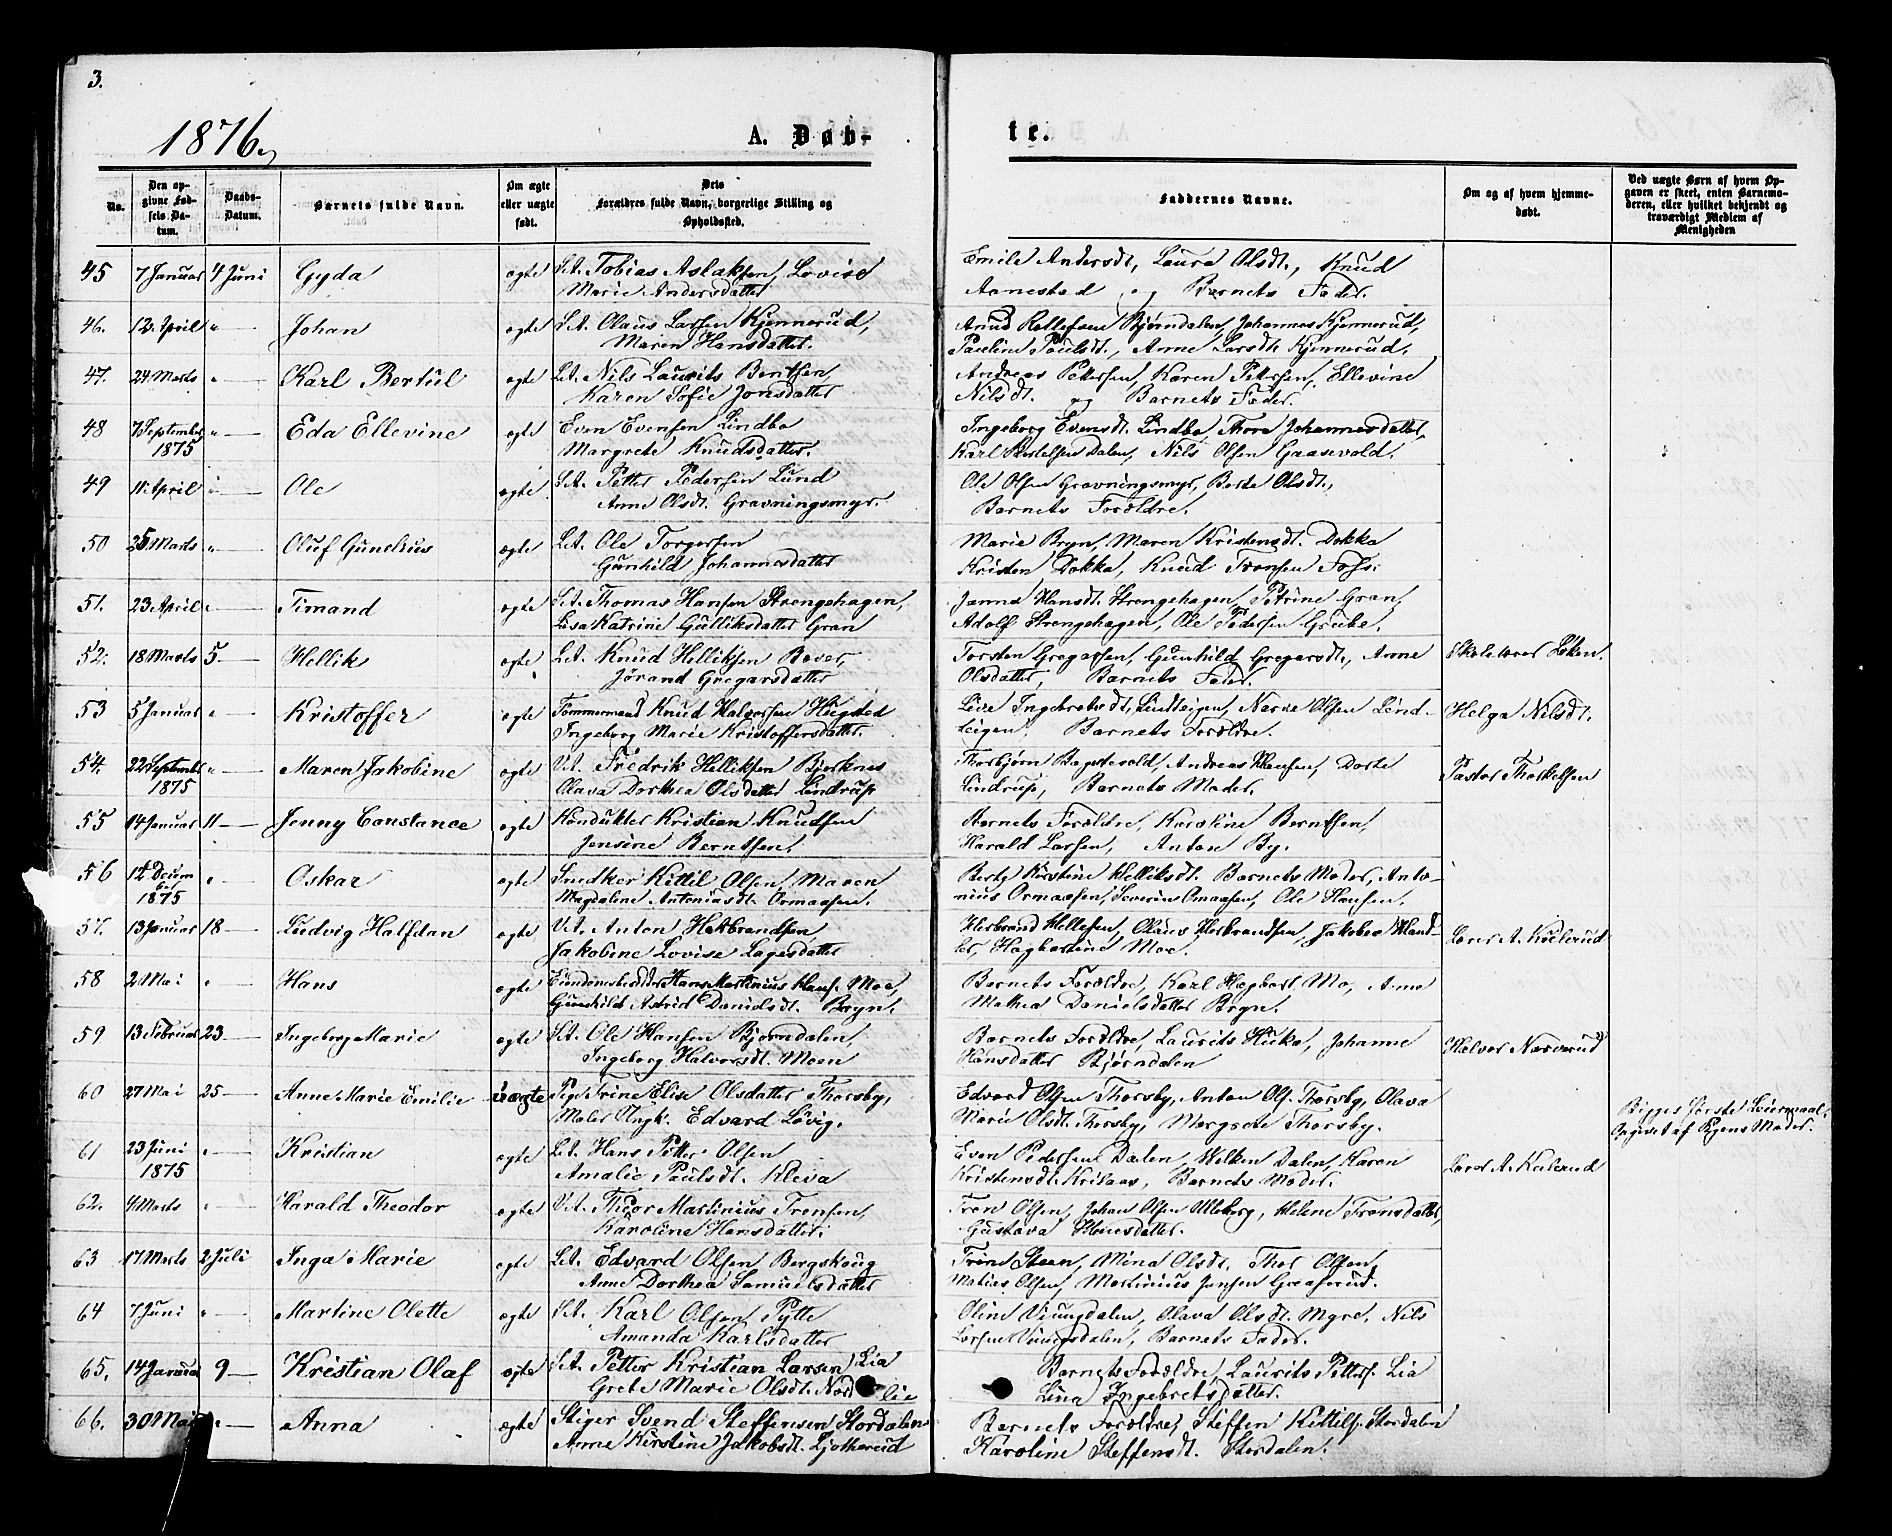 3.
1876
A. Døb-
te.
No.
Den opgivne Fødsels Datum.
Daabs-Datum.
Barnets fulde Navn.
Om ægte eller uægte født.
Dets Forældres fulde Navn, borgerlige Stilling og Opholdssted.
Faddernes Navne.
Om og af hvem hjemmedøbt.
Ved uægte Børn af hvem Opgaven er skeet, enten Barnemoderen, eller hvilket bekjendt og troværdigt Medlem af Menigheden
45 7 Januar 4 Juni Gyda ægte S.A. Tobias Aslaksen, Lovise Emilie Andersdt, Laura Olsdt., Knud
Marie Andersdatter Aanestad og Barnets Fader.
46. 12. April " Johan ægte S.A. Olaus Larsen Kjennerud, Rollefsen Bjørndalen, Johannes Kjennerud,
Maren Hansdatter. Pauline Paulsdt., Anne Larsdt. Kjennerud.
47. 24 Marts " Karl Bertul ægte L.A. Nils Laurits Berntsen, Andreas Pettersen, Karen Pettersen, Ellevine
Karen Sofie Jonsdatter Nilsdt. og Barnets Fader.
48 7 September 1875 " Eda Ellevine ægte Even Evensen Lindbo Ingeborg Evensdt. Lindbo Thora Johannesdatter,
Margrete Knudsdatter. Karl Dalen, Nils Olsen Gaasevold.
49 11. April " Ole ægte S.A. Petter Pedersen Lund Ole Olsen Gravningsmyr, Berte Olsdt.,
Anne Olsdt. Gravningsmyr. Barnets Forældre.
50 25 Marts " Oluf ægte L.A. Ole Torgersen Marie Bryn, Maren Kristensdt. Dokka
Gunhild Johannesdatter Kristen Dokka, Knud Tronsen Foss.
51. 23 April " Timand ægte S.A. Thomas Hansen Strengehagen, Janna Hansdt. Strengehagen, Petrine Gran,
Lisa Katrine Gulliksdatter Gran Adolf Strengehagen, Ole Pedersen Grube.
52. 18 Marts 5 Hellik ægte L.A. Knud Helliksen Bever, Torsten Gregersen, Gunhild Gregersdt., Anne Skolelærer Løken.
Jørand Gregarsdatter Olsdatter, Barnets Fader.
53 5 Januar " Kristoffer ægte Tømmermand Knud Halvorsen Lise Ingebretsdt. Lindteigen, Narve Olsen Lind- Helga Nilsdt.
Ingeborg Marie Kristoffersdatter teigen. Barnets Forældre.
54. 22 September 1875 " Maren Jakobine ægte V.A. Fredrik Helliksen Bjerknes Thorbjørn Andreas Hansen, Dorte Pastor Thorkelsen
Olava Dorthea Olsdatter Lindrup Lindrup, Barnets Moder.
55 14 Januar 11 Jenny Constance ægte Konduktør Kristian Knudsen Barnets Forældre, Karoline Berntsen,
Jensine Berntsen. Harald Larsen, Anton By.
56 12 December 1875 " Oskar ægte Snedker Kittil Olsen, Maren Kirstine Helliksdt. Barnets Moder, Anto-
Magdaline Antoniusdt. Ormaasen. nius Ormaasen, Severin Omaasen, Ole Hansen.
57. 13 Januar 18 Ludvig Halfdan ægte V.A. Anton Herbrandsen Herbrand Hellesen, Olaus Herbrandsen, Jakobea
Jakobine Lovise Lagesdatter Moe. Lærer A. Kulerud
58 2 Mai " Hans ægte Eiendomsbesidder Hans Martinius Hans. Moe, Barnets Forældre, Karl Hagbart Mo, Anne
Gunhild Astrid Danielsdt. Bryn. Mathea Danielsdatter Bryn.
59 13 Februar 23 Ingeborg Marie ægte S.A. Ole Hansen Bjørndalen, Barnets Forældre, Laurits Johanne Halvor Narverud
Ingeborg Halvorsdt. Moen Hansdatter Bjørndalen
60 27 Mai 25 Anne Marie Emilie uægte Pige Trine Elise Olsdatter Thorsby, Edvard Olsen Thorsby, Anton Ols. Thorsby, Olava Begges første Leiermaal.
Maler Ungk. Edvard Løvig. Marie Olsdt. Thorsby, Margrete Thorsby. Opgivet af Pigens Moder.
61 23 Juni 1875 " Kristian ægte L.A. Hans Petter Olsen Even Pedersen Dalen, Dalen, Karen Lærer A. Kulerud
Amalie Paulsdt. Kleva Kristensdt. Barnets Moder.
62. 4 Marts " Harald Theodor ægte V.A. Thor Martinius Tronsen, Tron Olsen, Johan Olsen Ulleberg, Helene Tronsdatter,
Karoline Hansdatter. Gustava Hansdatter.
63 17 Marts 2 Juli Inga Marie ægte L.A. Edvard Olsen Bergskaug Trine Steen, Mina Olsdt, Thor Olsen,
Anne Dorthea Samuelsdatter Matias Olsen, Martinius Jensen Graaferud.
64 7 Juni " Martine Olette ægte S.A. Karl Olsen Pytte Oline Viungdalen, Olava Olsdt. Myre, Nils
Amanda Karlsdatter Larsen Viungsdalen, Barnets Fader.
65. 14 Januar 9 Kristian Olaf ægte S.A. Petter Kristian Larsen Lia Barnets Forældre, Laurits Petters. Lia
Grete Marie Olsdt. Lina Ingebretsdatter.
66. 30 Mai " Anna ægte Stiger Svend Steffensen Stordalen Barnets Forældre, Steffen Kittils. Stordalen
Anne Kirstine Jakobsdt. Karoline Steffensdt. Stordalen.